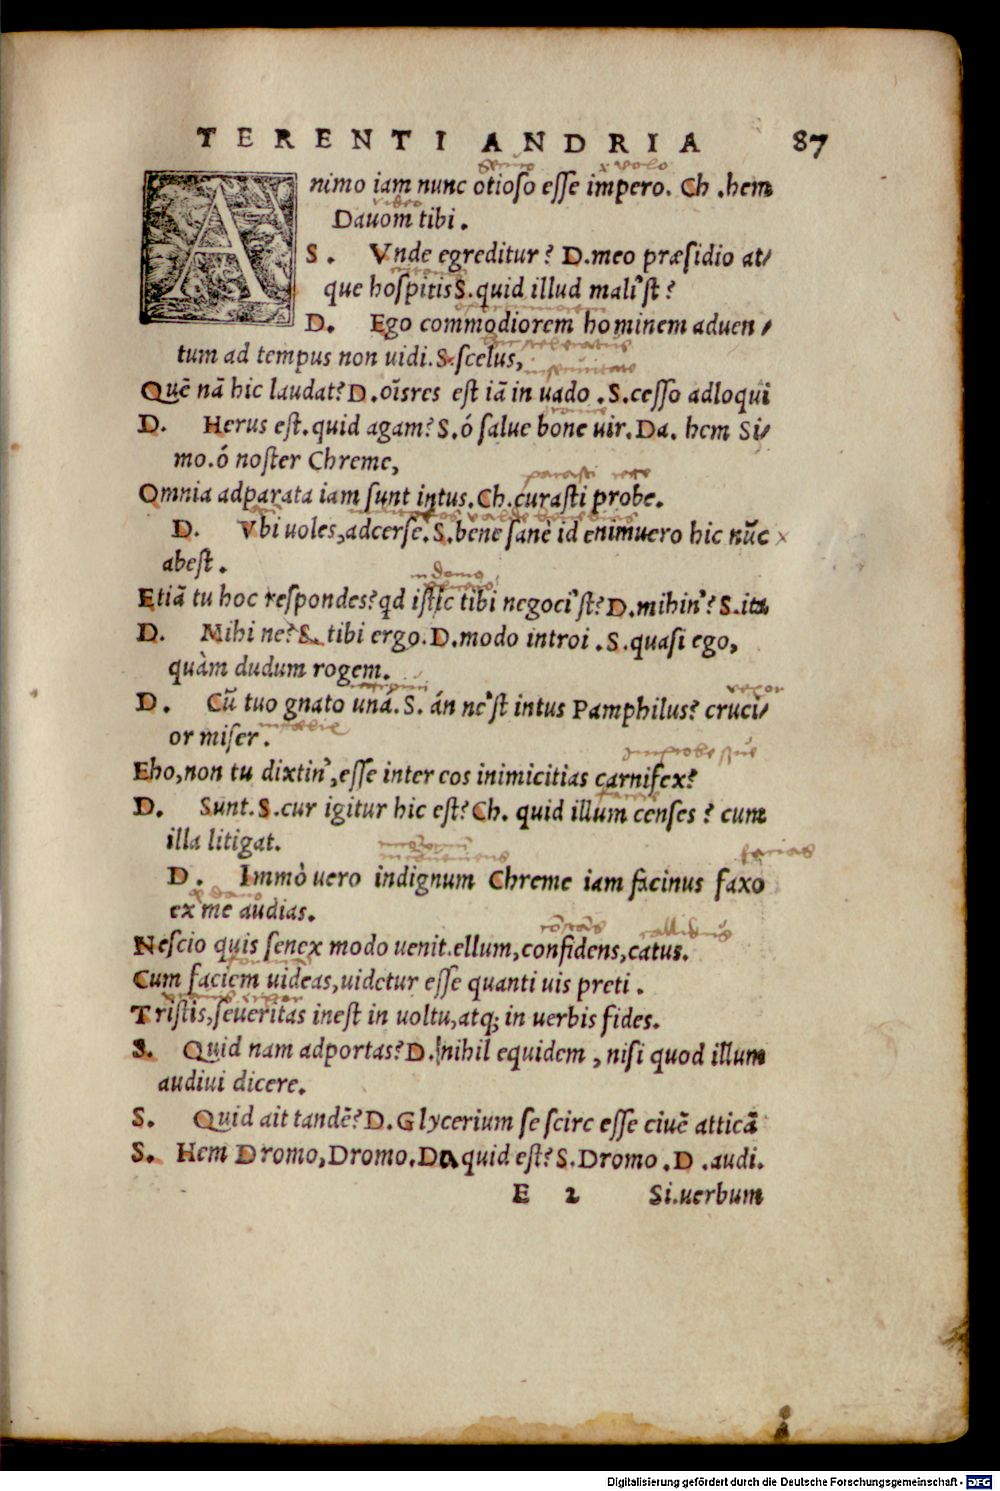 TERENTI ANDRIA 87
Animo iam nunc otioso esse impero. Ch .hem
video
Dauom tibi.
S. Vnde egreditur? D.meo præsidio at/
que hospitis S.quid illud mali'st?
D. Ego commodiorem hominem aduen/
tum ad tempus non uidi.S.scelus,
Quē nā hic laudat? D.oīsres est iā in uado .S.cesso adloqui
D. Herus est.quid agam? S.ó salue bone uir.Da. hem Si/
mo.ó noster Chreme,
Omnia adparata iam sunt intus.Ch.curasti probe.
D. Vbi uoles,adcerse.S.bene sanè id enimuero hic nūc
abest.
in domo
Etiā tu hoc respondes?qd istic tibi negoci'st? D.mihin'? S.ita
D. Mihi ne? S. tibi ergo.D.modo introi .S.quasi ego,
quàm dudum rogem.
D. Cū tuo gnato unà.S. án ne'st intus Pamphilus? cruci/
or miser.
Eho,non tu dixtin',esse inter eos inimicitias carnifex?
D. Sunt.S.cur igitur hic est? Ch. quid illum censes? cum
illa litigat.
facias
D. Immò uero indignum Chreme iam facinus faxo
ex me audias.
callidus
Nescio quis senex modo uenit.ellum,confidens,catus.
Cum faciem uideas,uidetur esse quanti uis preti.
Tristis,seueritas inest in uoltu,atq; in uerbis fides.
S. Quid nam adportas? D.nihil equidem, nisi quod illum
audiui dicere.
S. Quid ait tandē? D.Glycerium se scire esse ciuē atticā
S. Hem Dromo,Dromo.Da quid est? S.Dromo .D .audi.
E 2 Si.uerbum
Digitalisierung gefördert durch die Deutsche Forschungsgemeinschaft - DFG